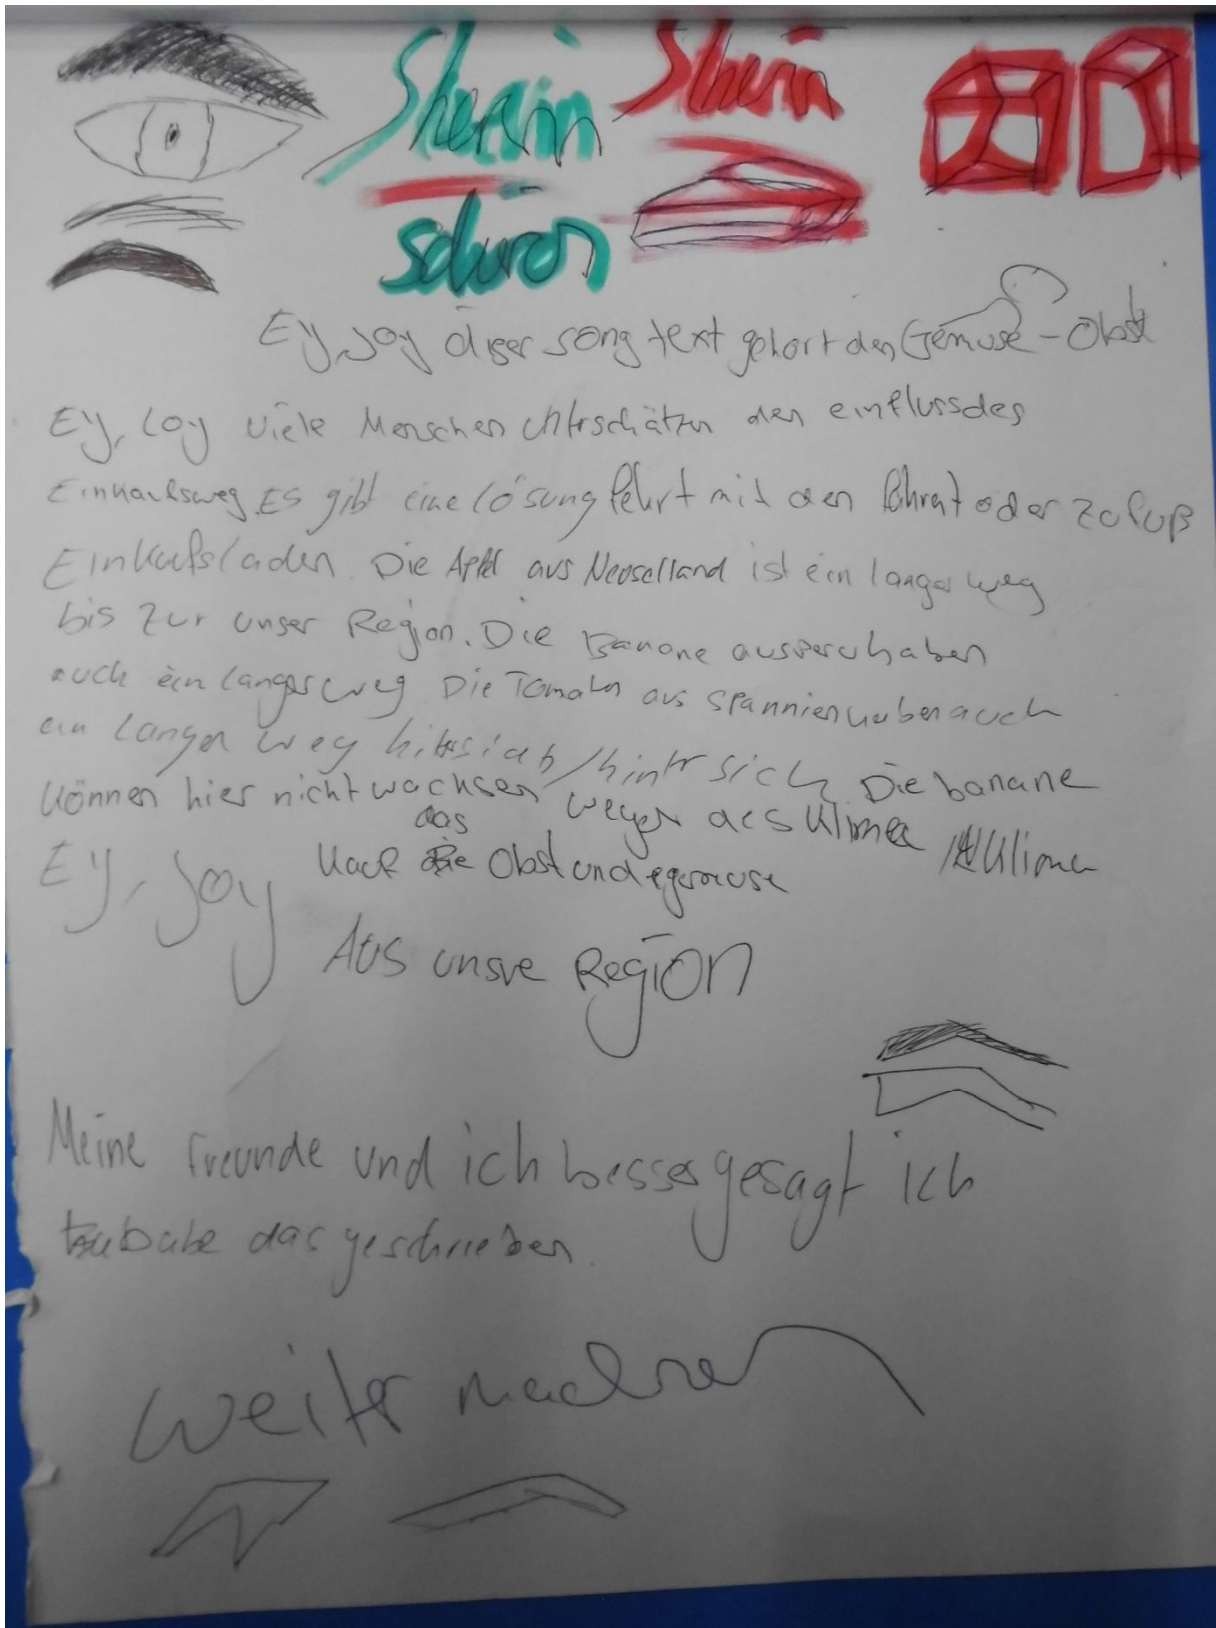 Sherin Sherin
Ey, Joy diser song text gehört den Gemüse - Obst
Ey, Loy viele Menschen unterschätzen den einfluss des
Einkaufsweg. Es gibt eine lösung fehrt mit den fahrat oder zu fuß
Einkaufsladen. Die Apfel aus Neuselland ist ein langer weg
bis zur unser Region. Die Banane aus Peru haben
auch ein langer weg Die Tomaten aus Spannien haben auch
ein langer weg hinter sich Die banane
können hier nicht wachsen wegen des Klima Klima
das
Ey, Joy Kauf Obst und gemuse
Aus unsre Region
Meine freunde und ich besser gesagt ich
habe das geschrieben.
weiter machen